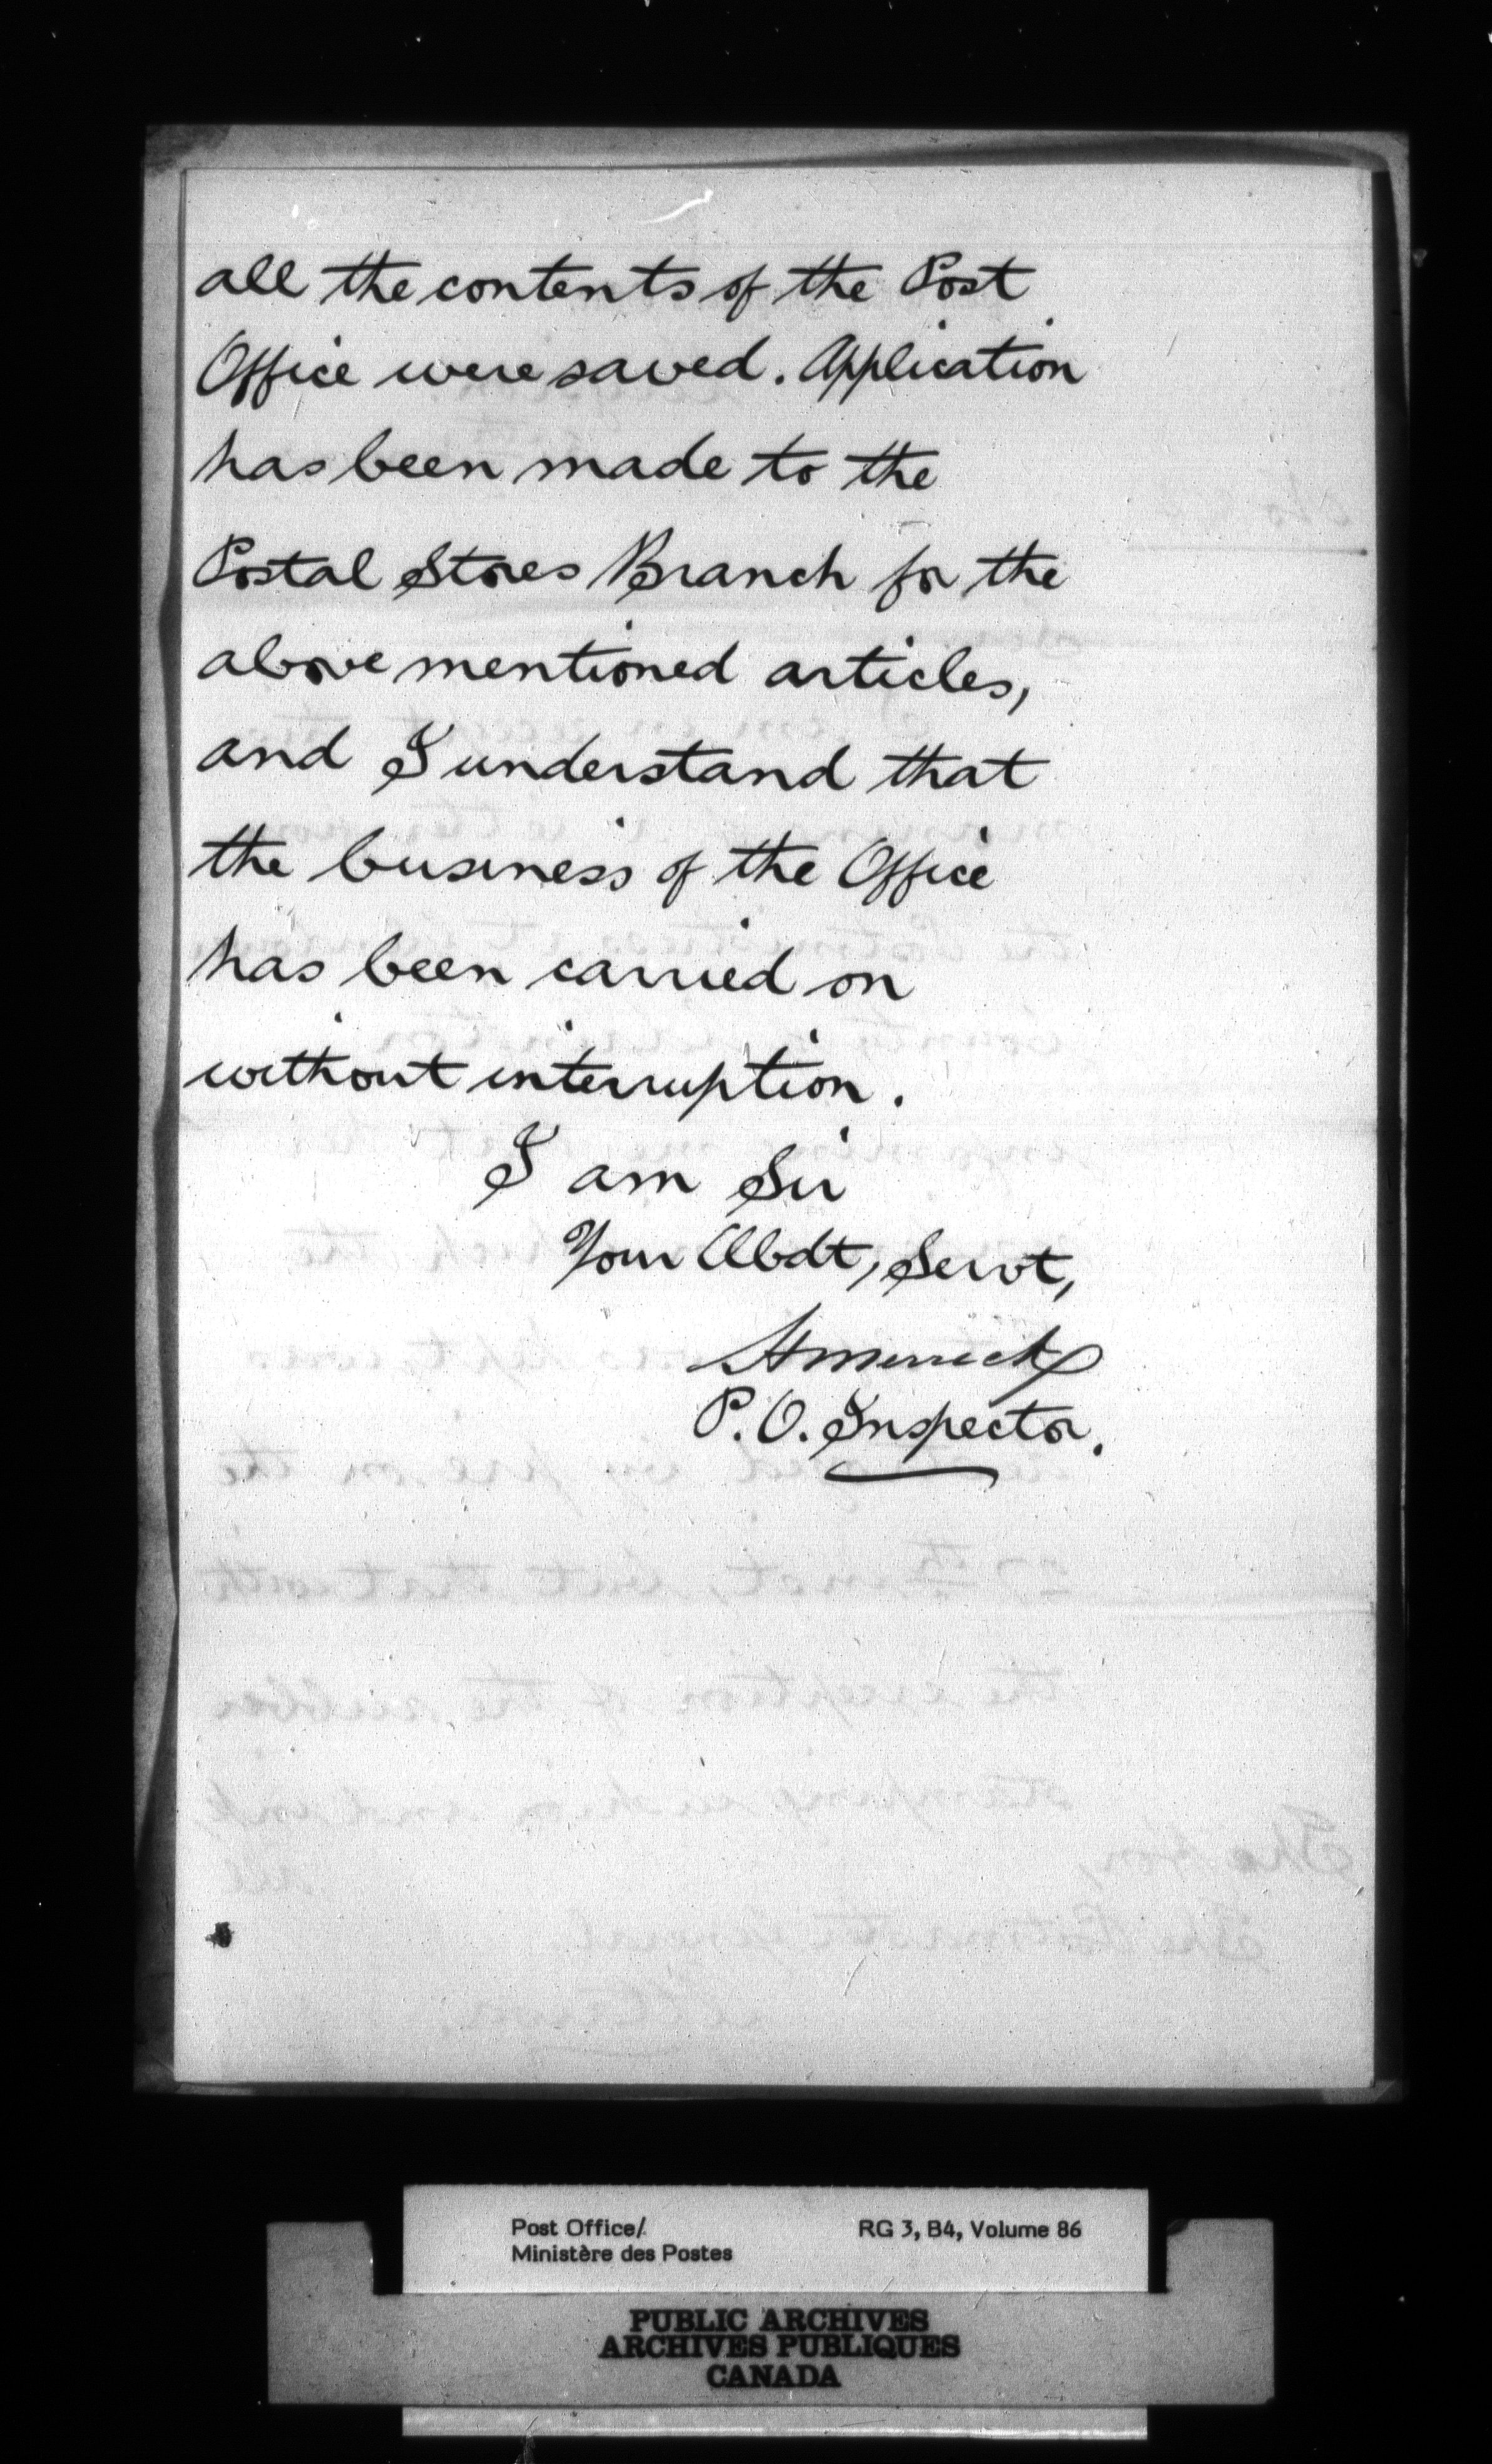 all the contents of the Post
Office were saved. Application
has been made to the
Postal Stores Branch for the
above mentioned articles,
and I understand that
the business of the Office
has been carried on
without interruption.
I am Sir
Your Obdt, Servt,
Hmerrick
P.O. Inspector.
Post Office/
Ministère des Postes
RG 3, B4, Volume 86
PUBLIC ARCHIVES
ARCHIVES PUBLIQUES
CANADA